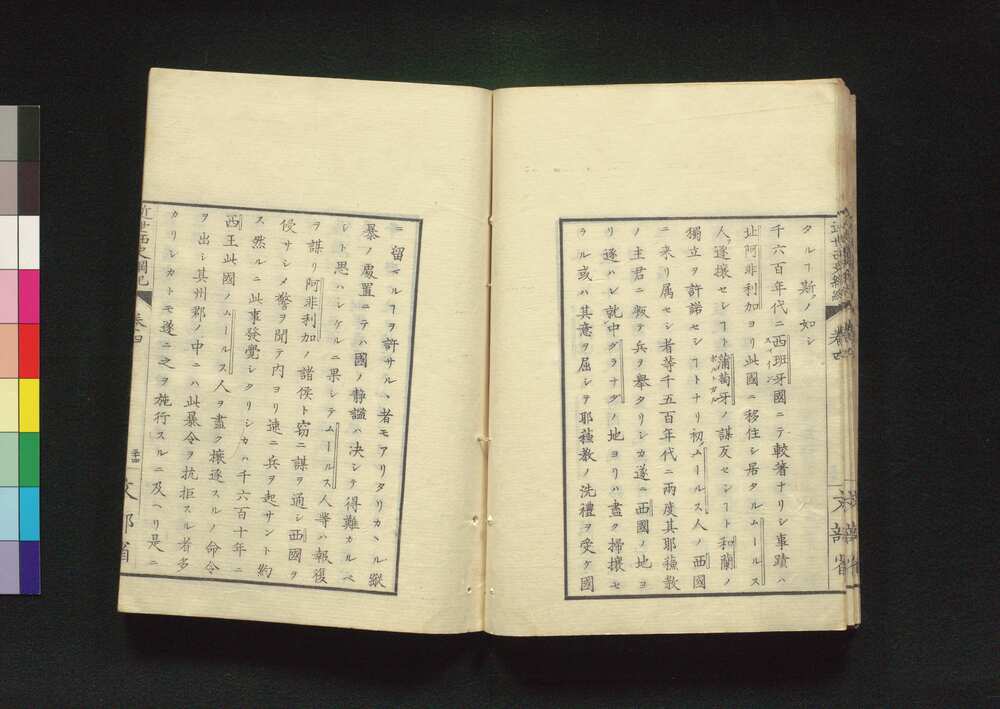 タルヿ斯ノ如シ
千六百年代ニ西班牙國ニテ較著ナリシ事蹟ハ
スペイン
址阿非利加ヨリ此國ニ移住シ居タルムールス
人ヲ逐攘セシヿト蒲萄牙ノ謀反セシヿト和蘭ノ
ポルトガル
獨立ヲ許諾セシヿトナリ初ムールス人ノ西國
ニ来リ属セシ者等千五百年代ニ兩度其耶蘓教
ノ主君ニ叛テ兵ヲ舉タリシカ遂ニ西國ノ地ヨ
リ逐ハレ就中グラナダノ地ヨリハ盡ク掃攘セ
ラル或ハ其意ヲ屈シテ耶蘓教ノ洗禮ヲ受ケ國
ニ留マルヿヲ許サルヽ者モアリタリカヽル蹤
暴ノ處置ニテハ國ノ静謐ハ决シテ得難カルベ
シト思ハレケルニ果シテムールス人等ハ報復
ヲ謀リ阿非利加ノ諸侯ト窃ニ謀ヲ通シ西國ヲ
侵サシメ警ヲ聞テ内ヨリ速ニ兵ヲ起サント約
ス然ルニ此事發覺シタリシカハ千六百十年ニ
西王此國ノムールス人ヲ盡ク攘逐スルノ命令
ヲ出シ其州郡ノ中ニハ此暴令ヲ抗拒スル者多
カリシカトモ遂ニ之ヲ施行スルニ及ヘリ是ニ
近世西史綱紀
卷四
文部省